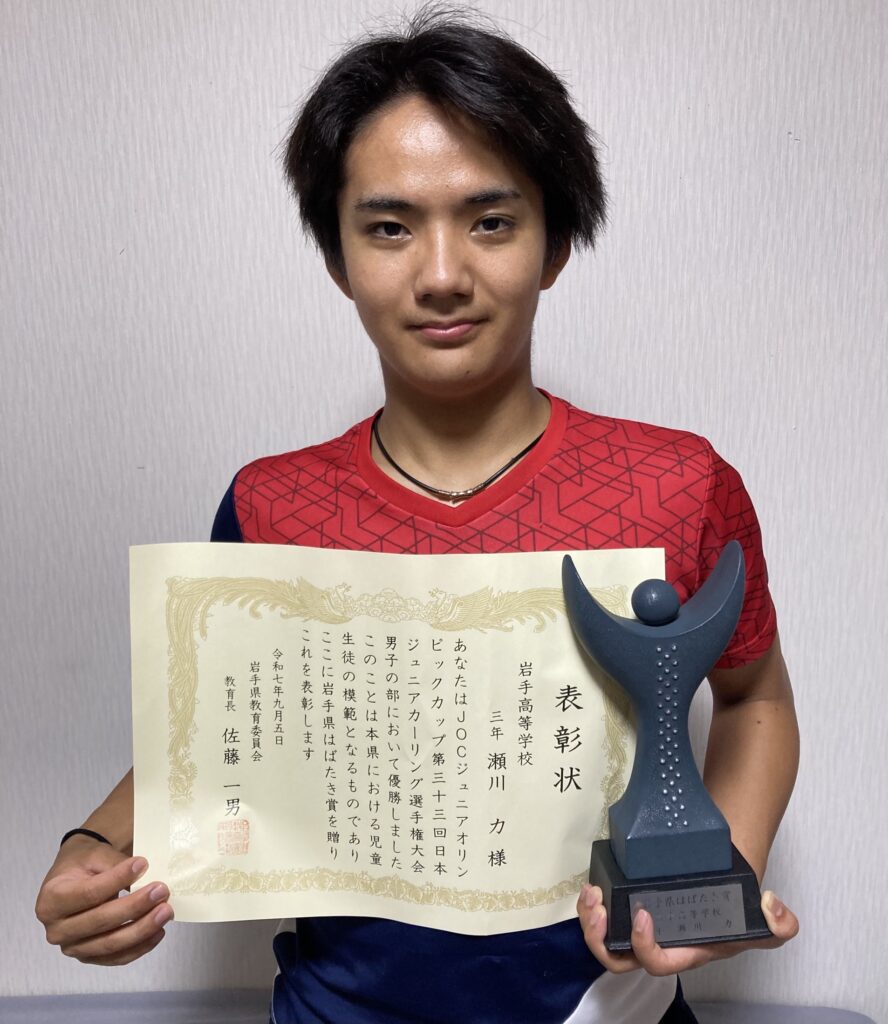 表彰状
岩手高等学校
三年 瀬川 力 様
あなたはJOCジュニアオリン
ピックカップ第三十三回日本
ジュニアカーリング選手権大会
男子の部において優勝しました
このことは本県における児童
生徒の模範となるものであり
ここに岩手県はばたき賞を贈り
これを表彰します
令和七年九月五日
岩手県教育委員会
教育長 佐藤 一男
手県はばたき賞
等学校
瀬川 力